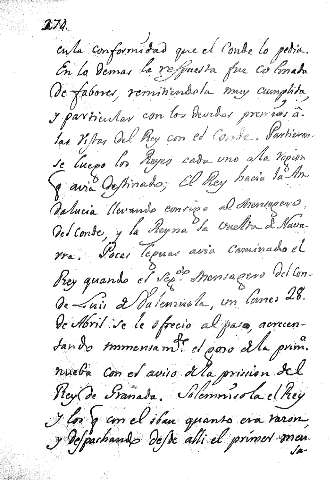 274.
en la conformidad que el Conde lo pedia.
En lo demas la respuesta fue colmada
de fabores, remitiendola muy cumplida,
y particular con los devidos previos á
las vistas del Rey con el Conde. Partieron-
se luego los Reyes cada uno a la
q̃ avia destinado; El Rey hacia la An-
dalucia llevando consigo al Mensagero
del Conde, y la Reyna la vuelta d Nava-
rra. Pocas leguas avia caminado el
Rey quando el Seg.do Mensagero del Con-
de Luis de Valenzuela, un Lunes 28.
de Abril se le ofrecio al paso, acrecen-
tando immensam.te el gozo de la prim.a
nueba con el aviso de la prision del
Rey de Granada. Solemnizola el Rey
y los q̃ con el iban quanto era razon,
y despachando desde alli el primer men-
sa-